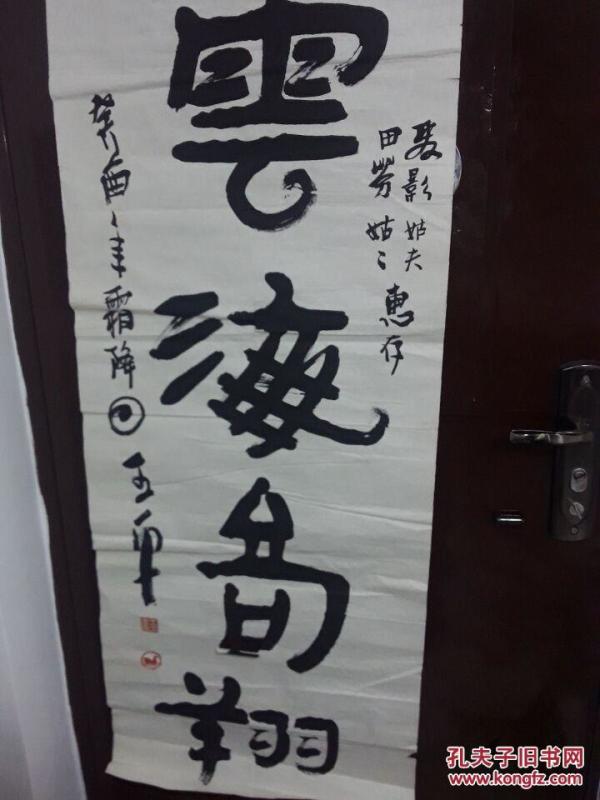 影 姑夫
田芳 姑々 惠存
雲海高翔
癸酉年霜降日 王
孔夫子旧书网
www.kongfz.com